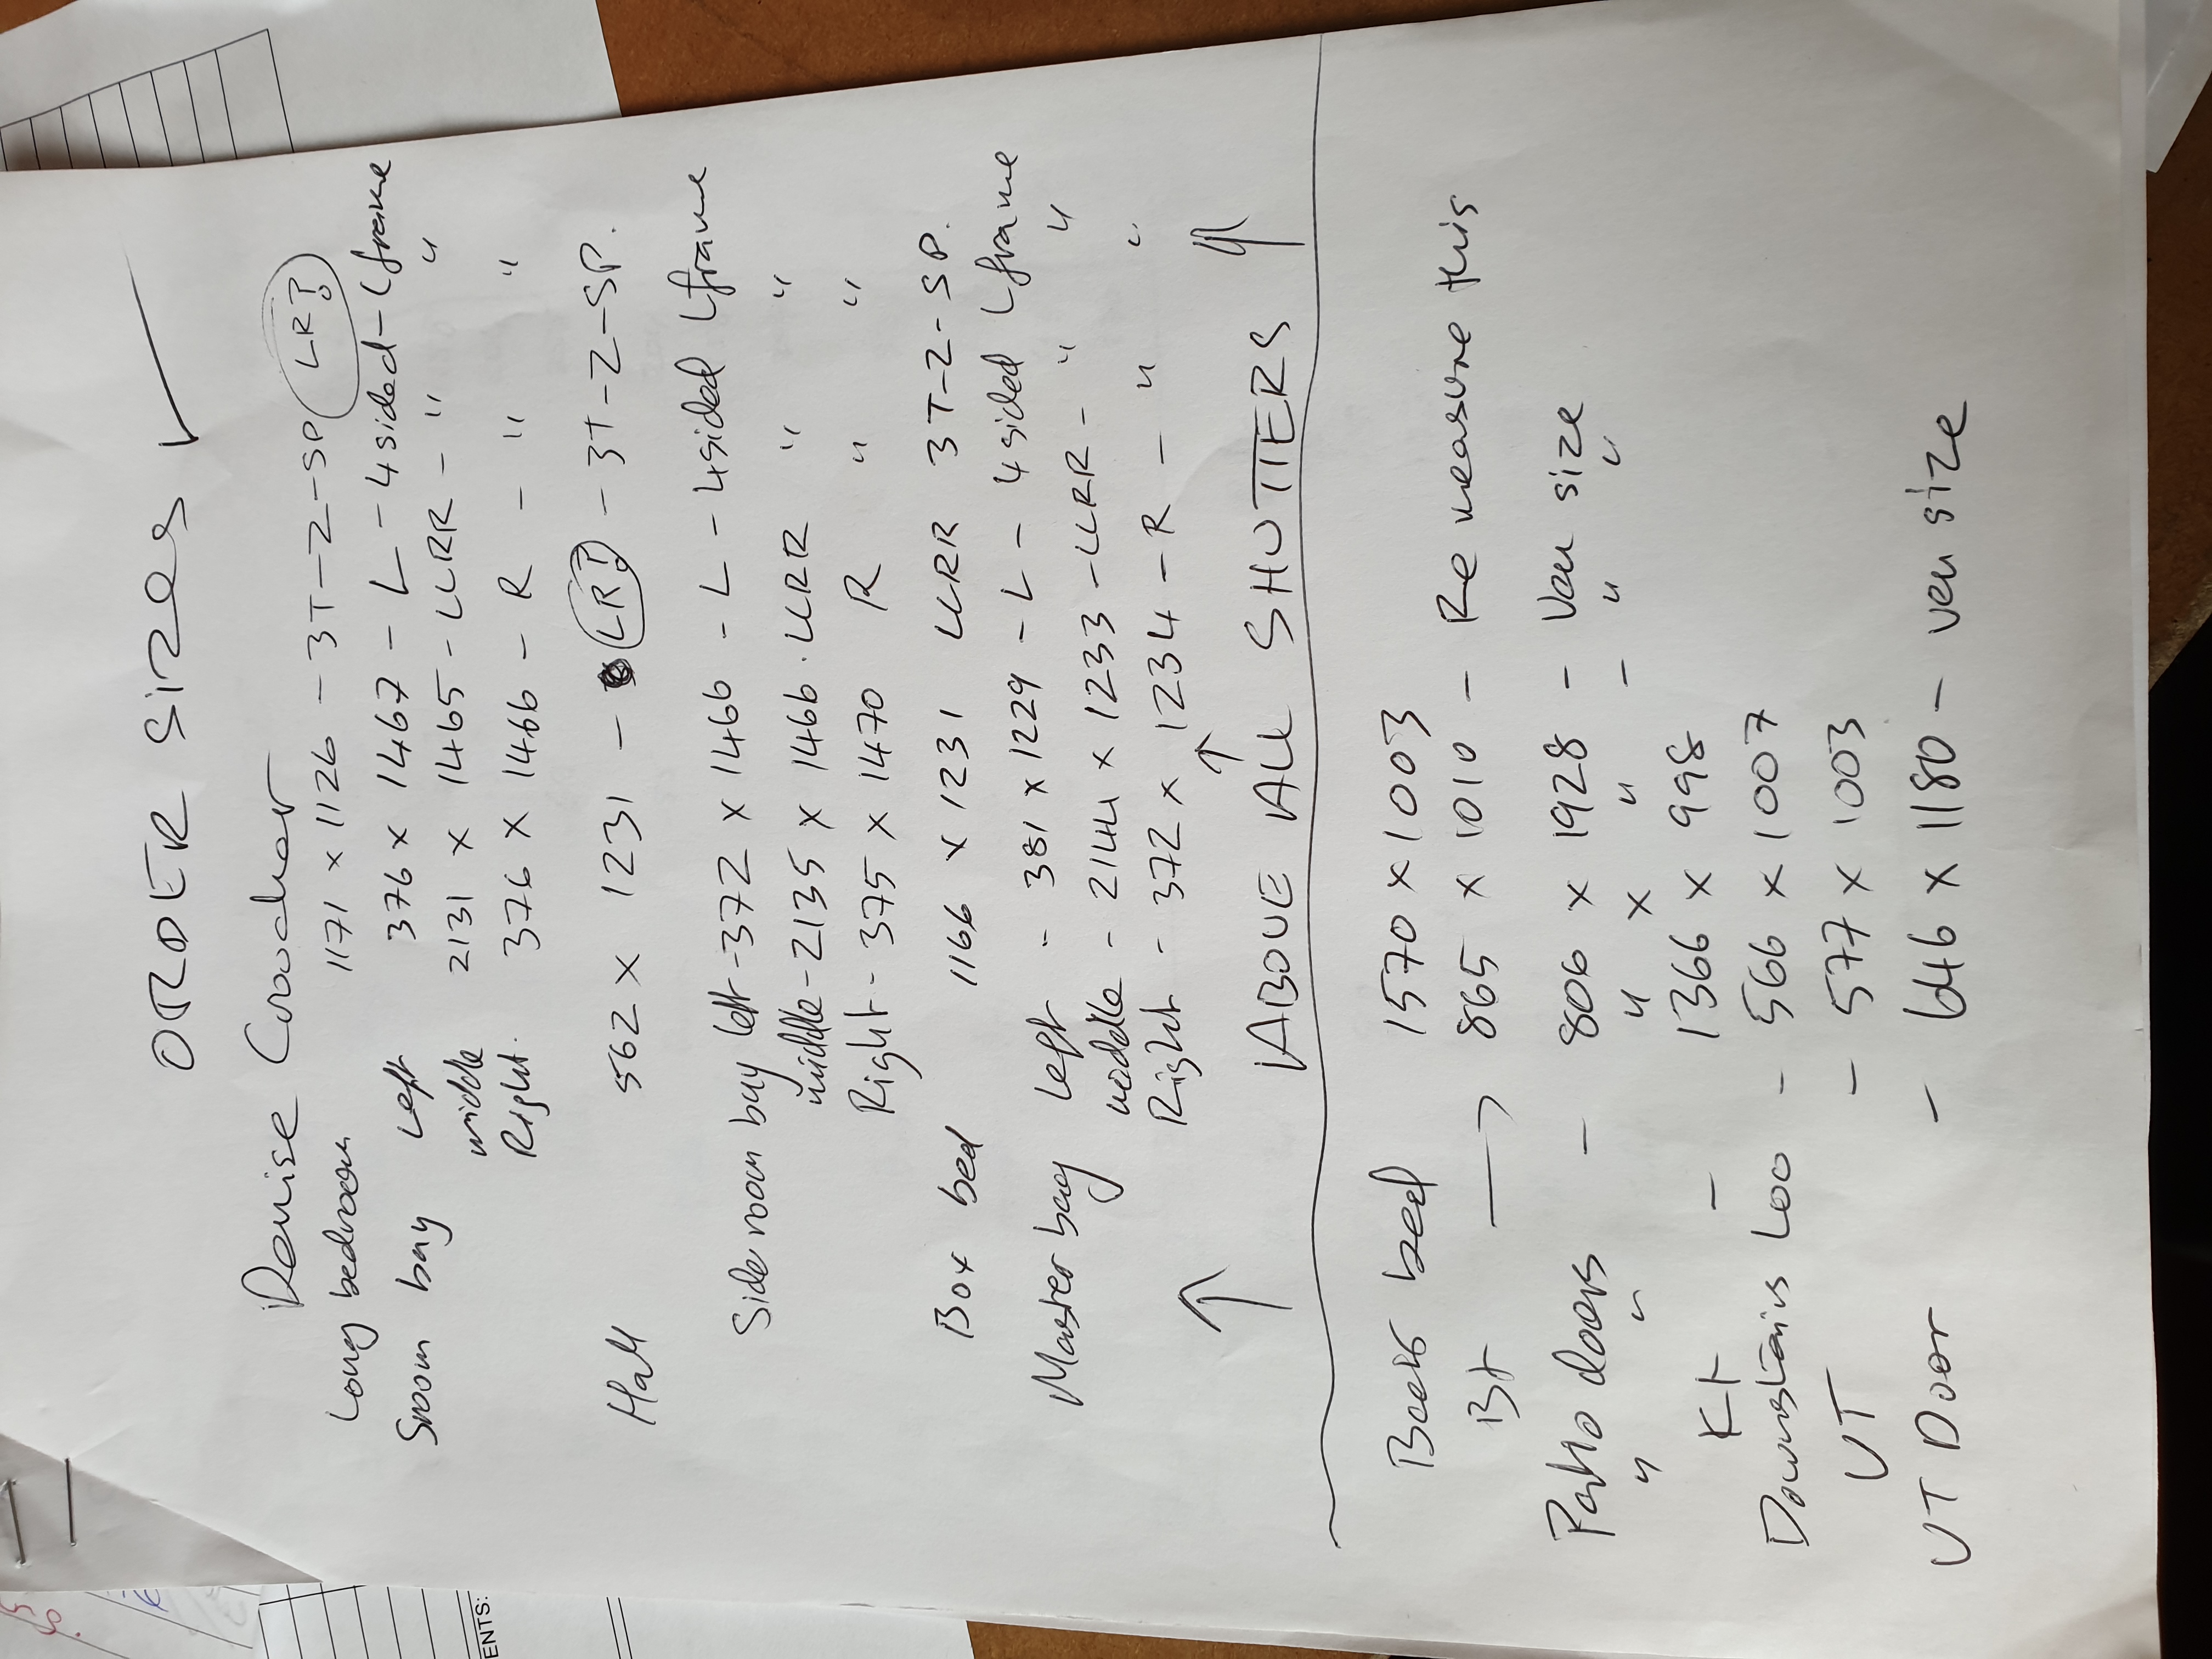 ORDER SIZES
Denise Crowcher
Long bedroom 1171 x 1126 - 3T-Z-SP LR?
Sroom bay Left 376 x 1467 - L - 4 sided - Lframe
middle 2131 x 1465 - LLRR - " "
Right. 376 x 1466 - R - " "
Hall 562 x 1231 - LR? - 3T-Z-SP.
Side room bay left - 372 x 1466 - L - 4sided Lframe
middle - 2135 x 1466. LLRR " "
Right - 375 x 1470 R " "
Box bed 1166 x 1231 LLRR 3T-Z-SP.
Master bay Left - 381 x 1229 - L - 4 sided Lframe
middle - 2144 x 1233 - LLRR - " "
Right - 372 x 1234 - R - " "
↑ ABOVE ALL SHUTTERS ↑
↑
bed 1570 x 1003
Bt → 865 x 1010 - Re measure this
Patio doors - 806 x 1928 - Ven size
" " " x " - " "
Kt - 1366 x 998
Downstairs Loo - 566 x 1007
UT - 577 x 1003
UT Door - 646 x 1180 - ven size
ENTS: